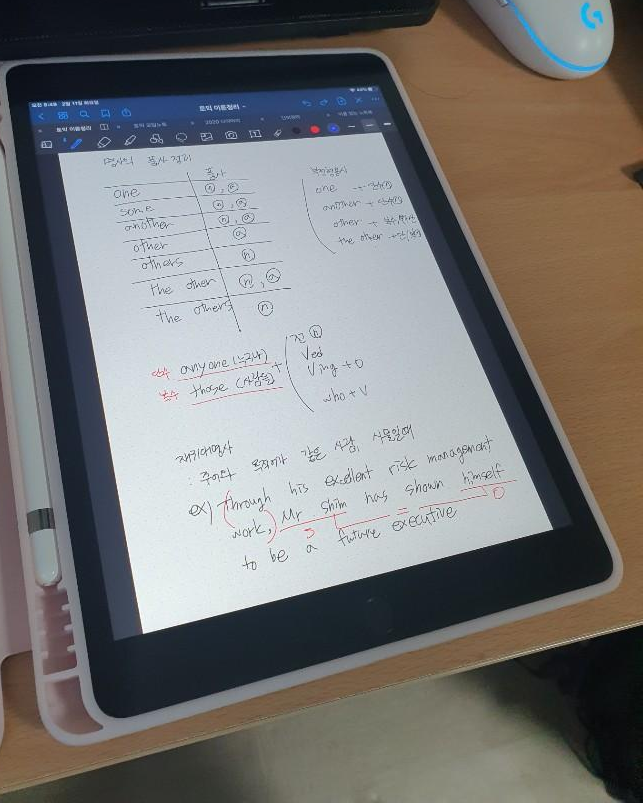 오전 8:48 2월 11일 화요일
토익 이론정리
토익 이론정리
품사
one ⓝ, ⓐ
some ⓝ, ⓐ
another ⓝ, ⓐ
other ⓐ
others ⓝ
the other ⓝ, ⓐ
the others ⓝ
one
another +
other +
the other +
단수 anyone (누구나) +
복수 those (사람들)
전ⓝ
Ved
Ving + O
who + V
재귀대명사
: 주어와 목적어가 같은 사람, 사물일때
ex) through his excellent risk management
work, Mr shim has shown himself
S O
to be a future executive